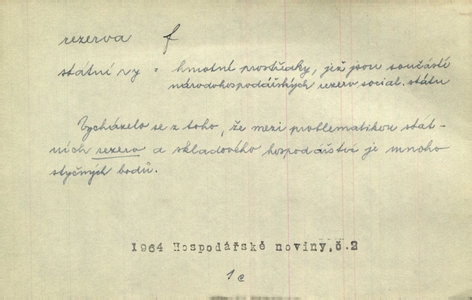 rezerva f
státní r-y = hmotné prostředky, jež jsou součástí
národohospodářských rezerv social. státu
Vycházelo se z toho, že mezi problematikou stát-
ních rezerv a skladového hospodářství je mnoho
styčných bodů.
1964 Hospodářské noviny, č.2
1c